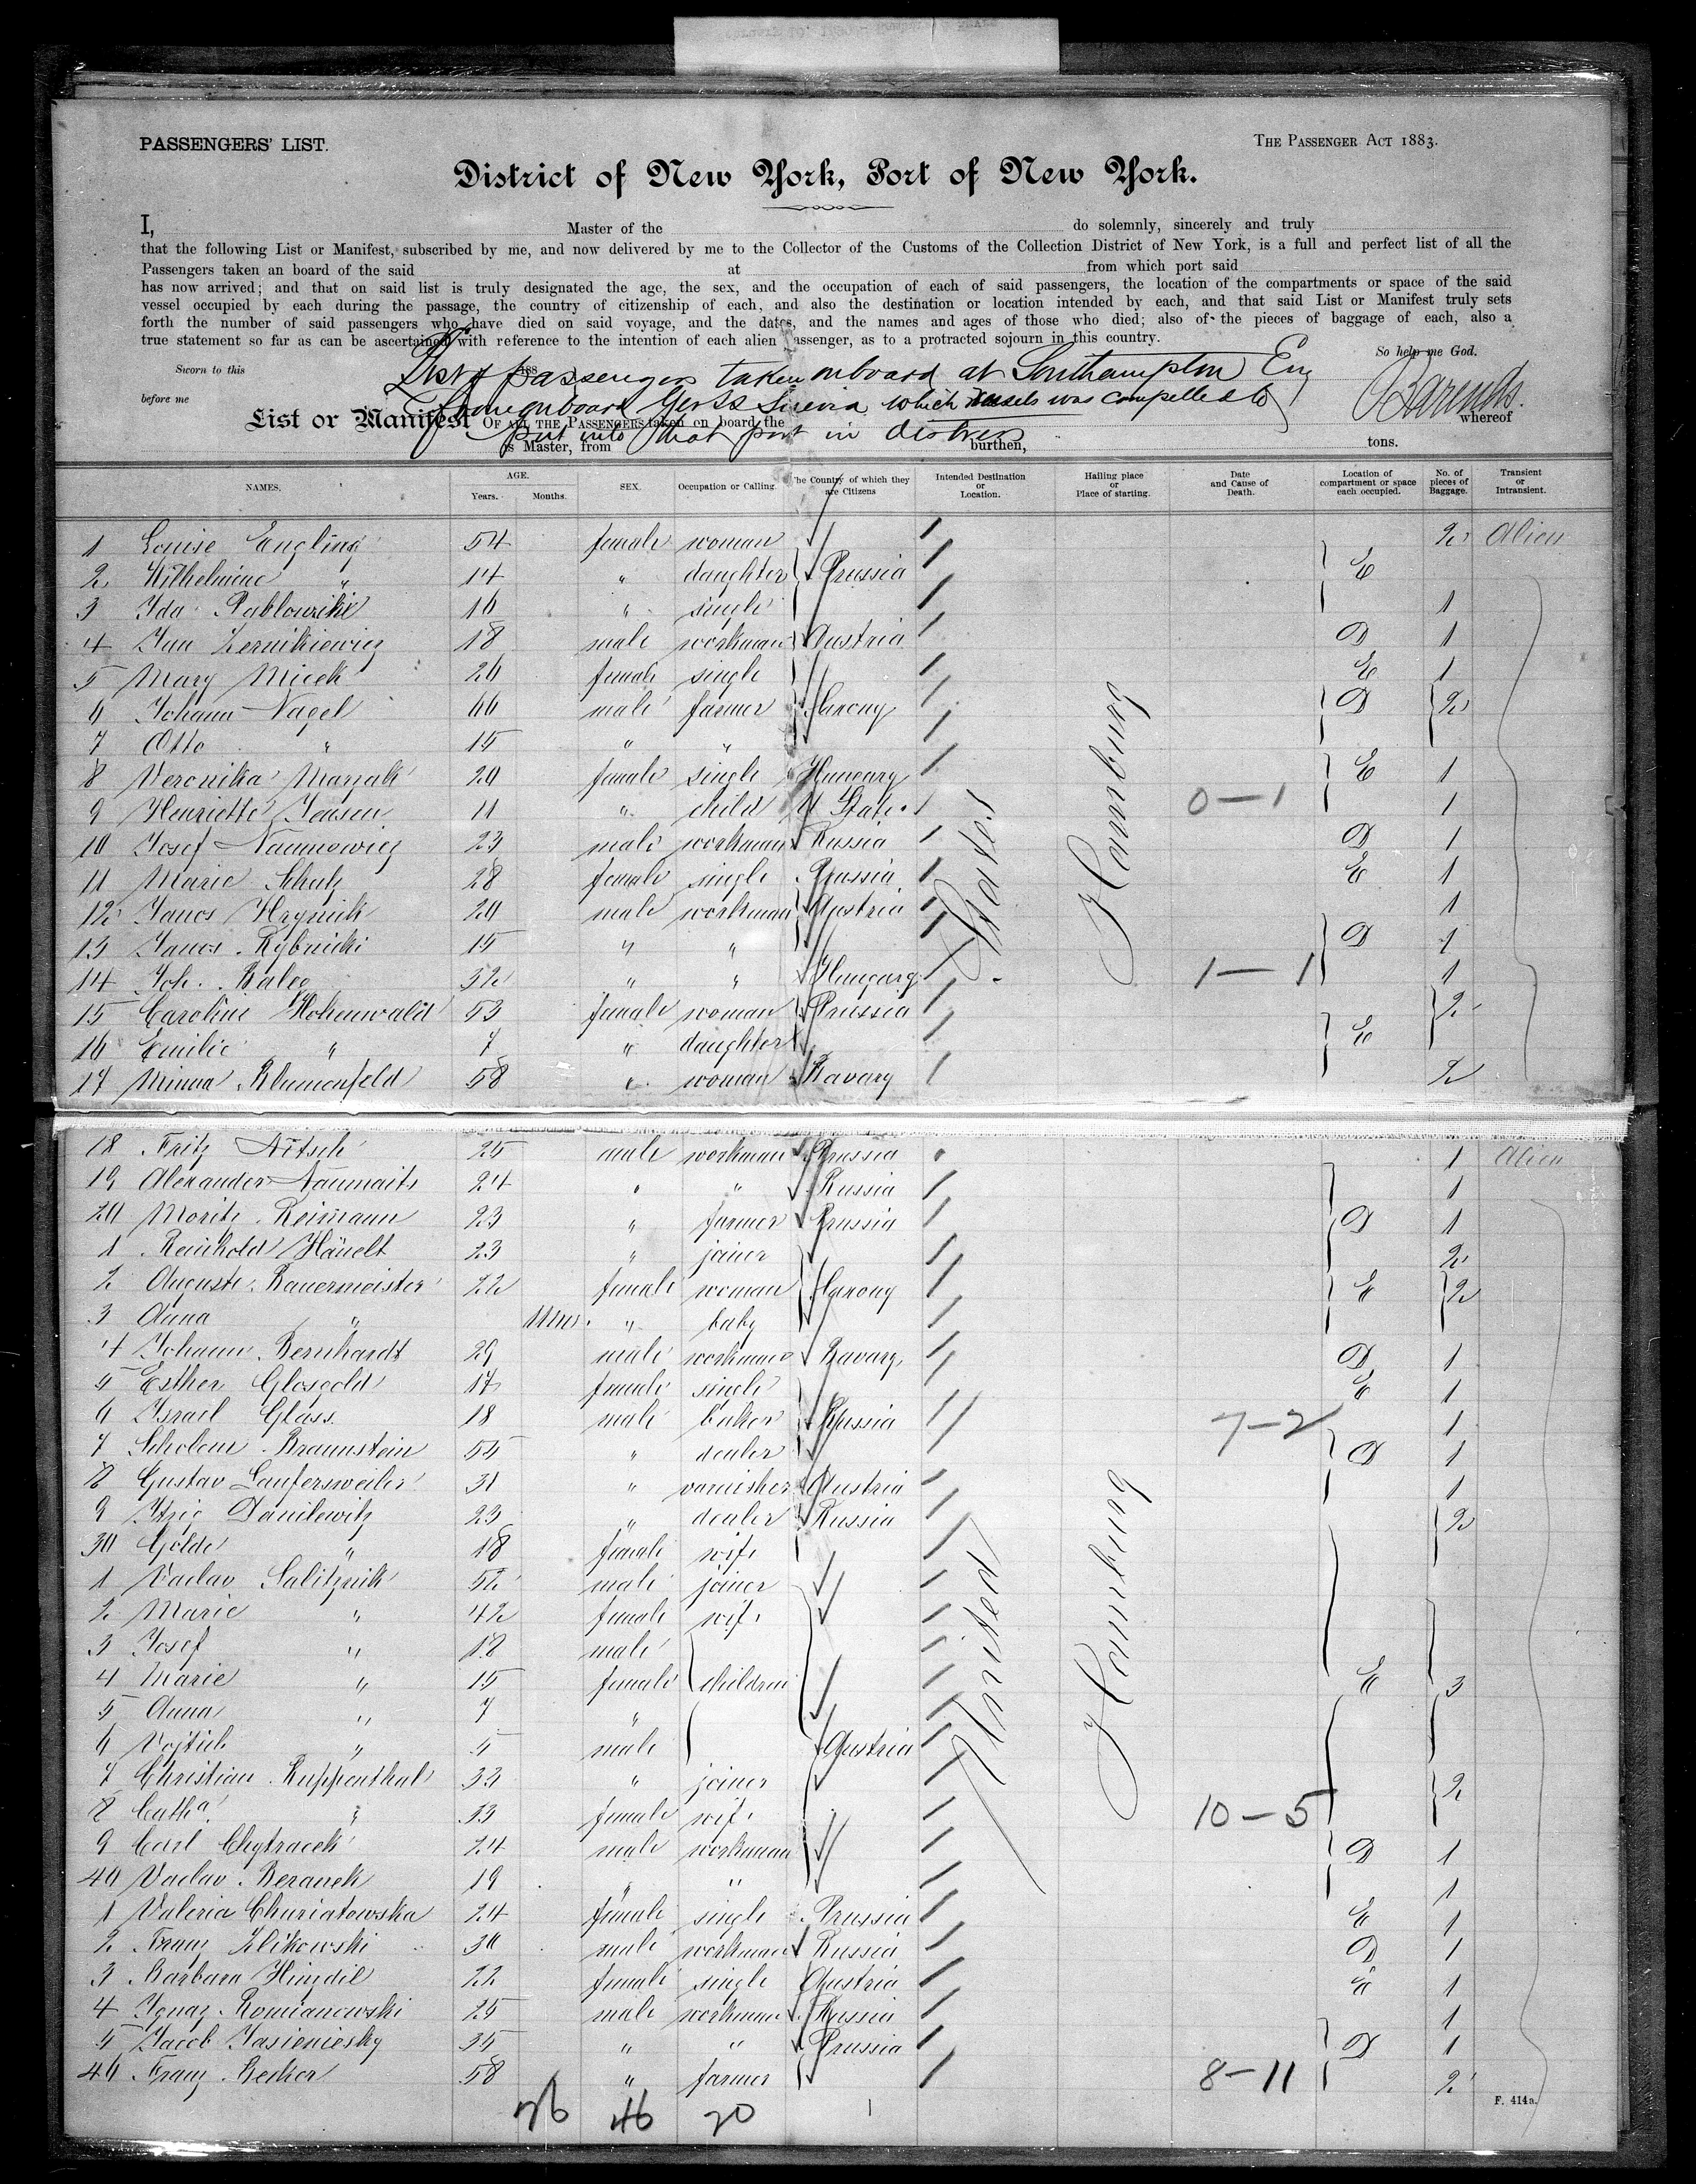 PASSENGERS' LIST.
THE PASSENGER ACT 1883.
District of New York, Port of New York.
I, Master of the do solemnly, sincerely and truly
that the following List or Manifest, subscribed by me, and now delivered by me to the Collector of the Customs of the Collection District of New York, is a full and perfect list of all the
Passengers taken an board of the said at from which port said
has now arrived; and that on said list is truly designated the age, the sex, and the occupation of each of said passengers, the location of the compartments or space of the said
vessel occupied by each during the passage, the country of citizenship of each, and also the destination or location intended by each, and that said List or Manifest truly sets
forth the number of said passengers who have died on said voyage, and the dates, and the names and ages of those who died; also of the pieces of baggage of each, also a
true statement so far as can be ascertained with reference to the intention of each alien passenger, as to a protracted sojourn in this country.
So help me God.
Sworn to this
List of passengers taken onboard at Southampton Eng
before me
from onboard Ger SS Suevia which vessels was compelled to
Barends.
List or Manifest OF ALL THE PASSENGERS taken on board the whereof
put into that port in distress
is Master, from burthen, tons.
NAMES. AGE. Years. Months. SEX. Occupation or Calling. The Country of which they are Citizens Intended Destination or Location. Hailing place or Place of starting. Date and Cause of Death. Location of compartment or space each occupied. No. of pieces of Baggage. Transient or Intransient.
1 Louise Engling 54 female woman 2 Alien
2 Wilhelmine " 14 " daughter Prussia E
3 Ida Pablowski 16 " single 1
4 Jan Zernikiewicz 18 male workman Austria D 1
5 Mary Micek 26 female single E 1
6 Johann Nagel 66 male farmer Saxony D 2
7 Otto " 15 " "
8 Veronika Marzak 20 female single Hungary E 1
9 Henriette Jensen 11 " child U State 0-1 1
10 Josef Naumowicz 23 male workman Russia D 1
11 Marie Schulz 28 female single Prussia E 1
12 Janos Hrynik 20 male workman Austria 1
13 Janos Rybnicki 15 " " D 1
14 Joh. Baleo 32 " " Hungary 1-1 1
15 Caroline Hohenwald 53 female woman Prussia 2
16 Emilie " 7 " daughter E
17 Minna Blumenfeld 58 " woman Bavary 2
States
Hamburg
18 Fritz Nitsch 25 male workman Prussia 1 Alien
19 Alexander Naumaits 24 " " Russia 1
20 Moritz Reimann 23 " farmer Prussia D 1
1 Reinhold Hänelt 23 " joiner 2
2 Auguste Bauermeister 22 female woman Saxony E 2
3 Anna " 11mo. " baby
4 Johann Bernhardt 29 male workman Bavary D 1
5 Esther Glosgold 17 female single E 1
6 Israel Glass 18 male baker Russia 7-2 1
7 Scholem Braunstein 55 " dealer D 1
8 Gustav Laufersweiler 31 " varnisher Austria 1
9 Itzig Danilewitz 23 " dealer Russia 2
30 Golde " 18 female wife
1 Vaclav Salitznik 52 male joiner
2 Marie " 42 female wife
3 Josef " 18 male
4 Marie " 15 female children E 3
5 Anna " 7 "
6 Vojtich " 5 male Austria
7 Christian Ruppenthal 33 " joiner 2
8 Catha " 33 female wife 10-5
9 Carl Chytracek 24 male workman D 1
40 Vaclav Beranek 19 " " 1
1 Valeria Churiatowska 24 female single Prussia E 1
2 Franz Zlikowski 30 male workman Russia D 1
3 Barbara Hinzdil 22 female single Austria E 1
4 Ignaz Romianowski 25 male workman Russia 1
5 Jacob Jasieniesky 35 " " Prussia D 1
46 Franz Becker 58 " farmer 8-11 2
United
Hamburg
26 46 20 1
F. 414a.